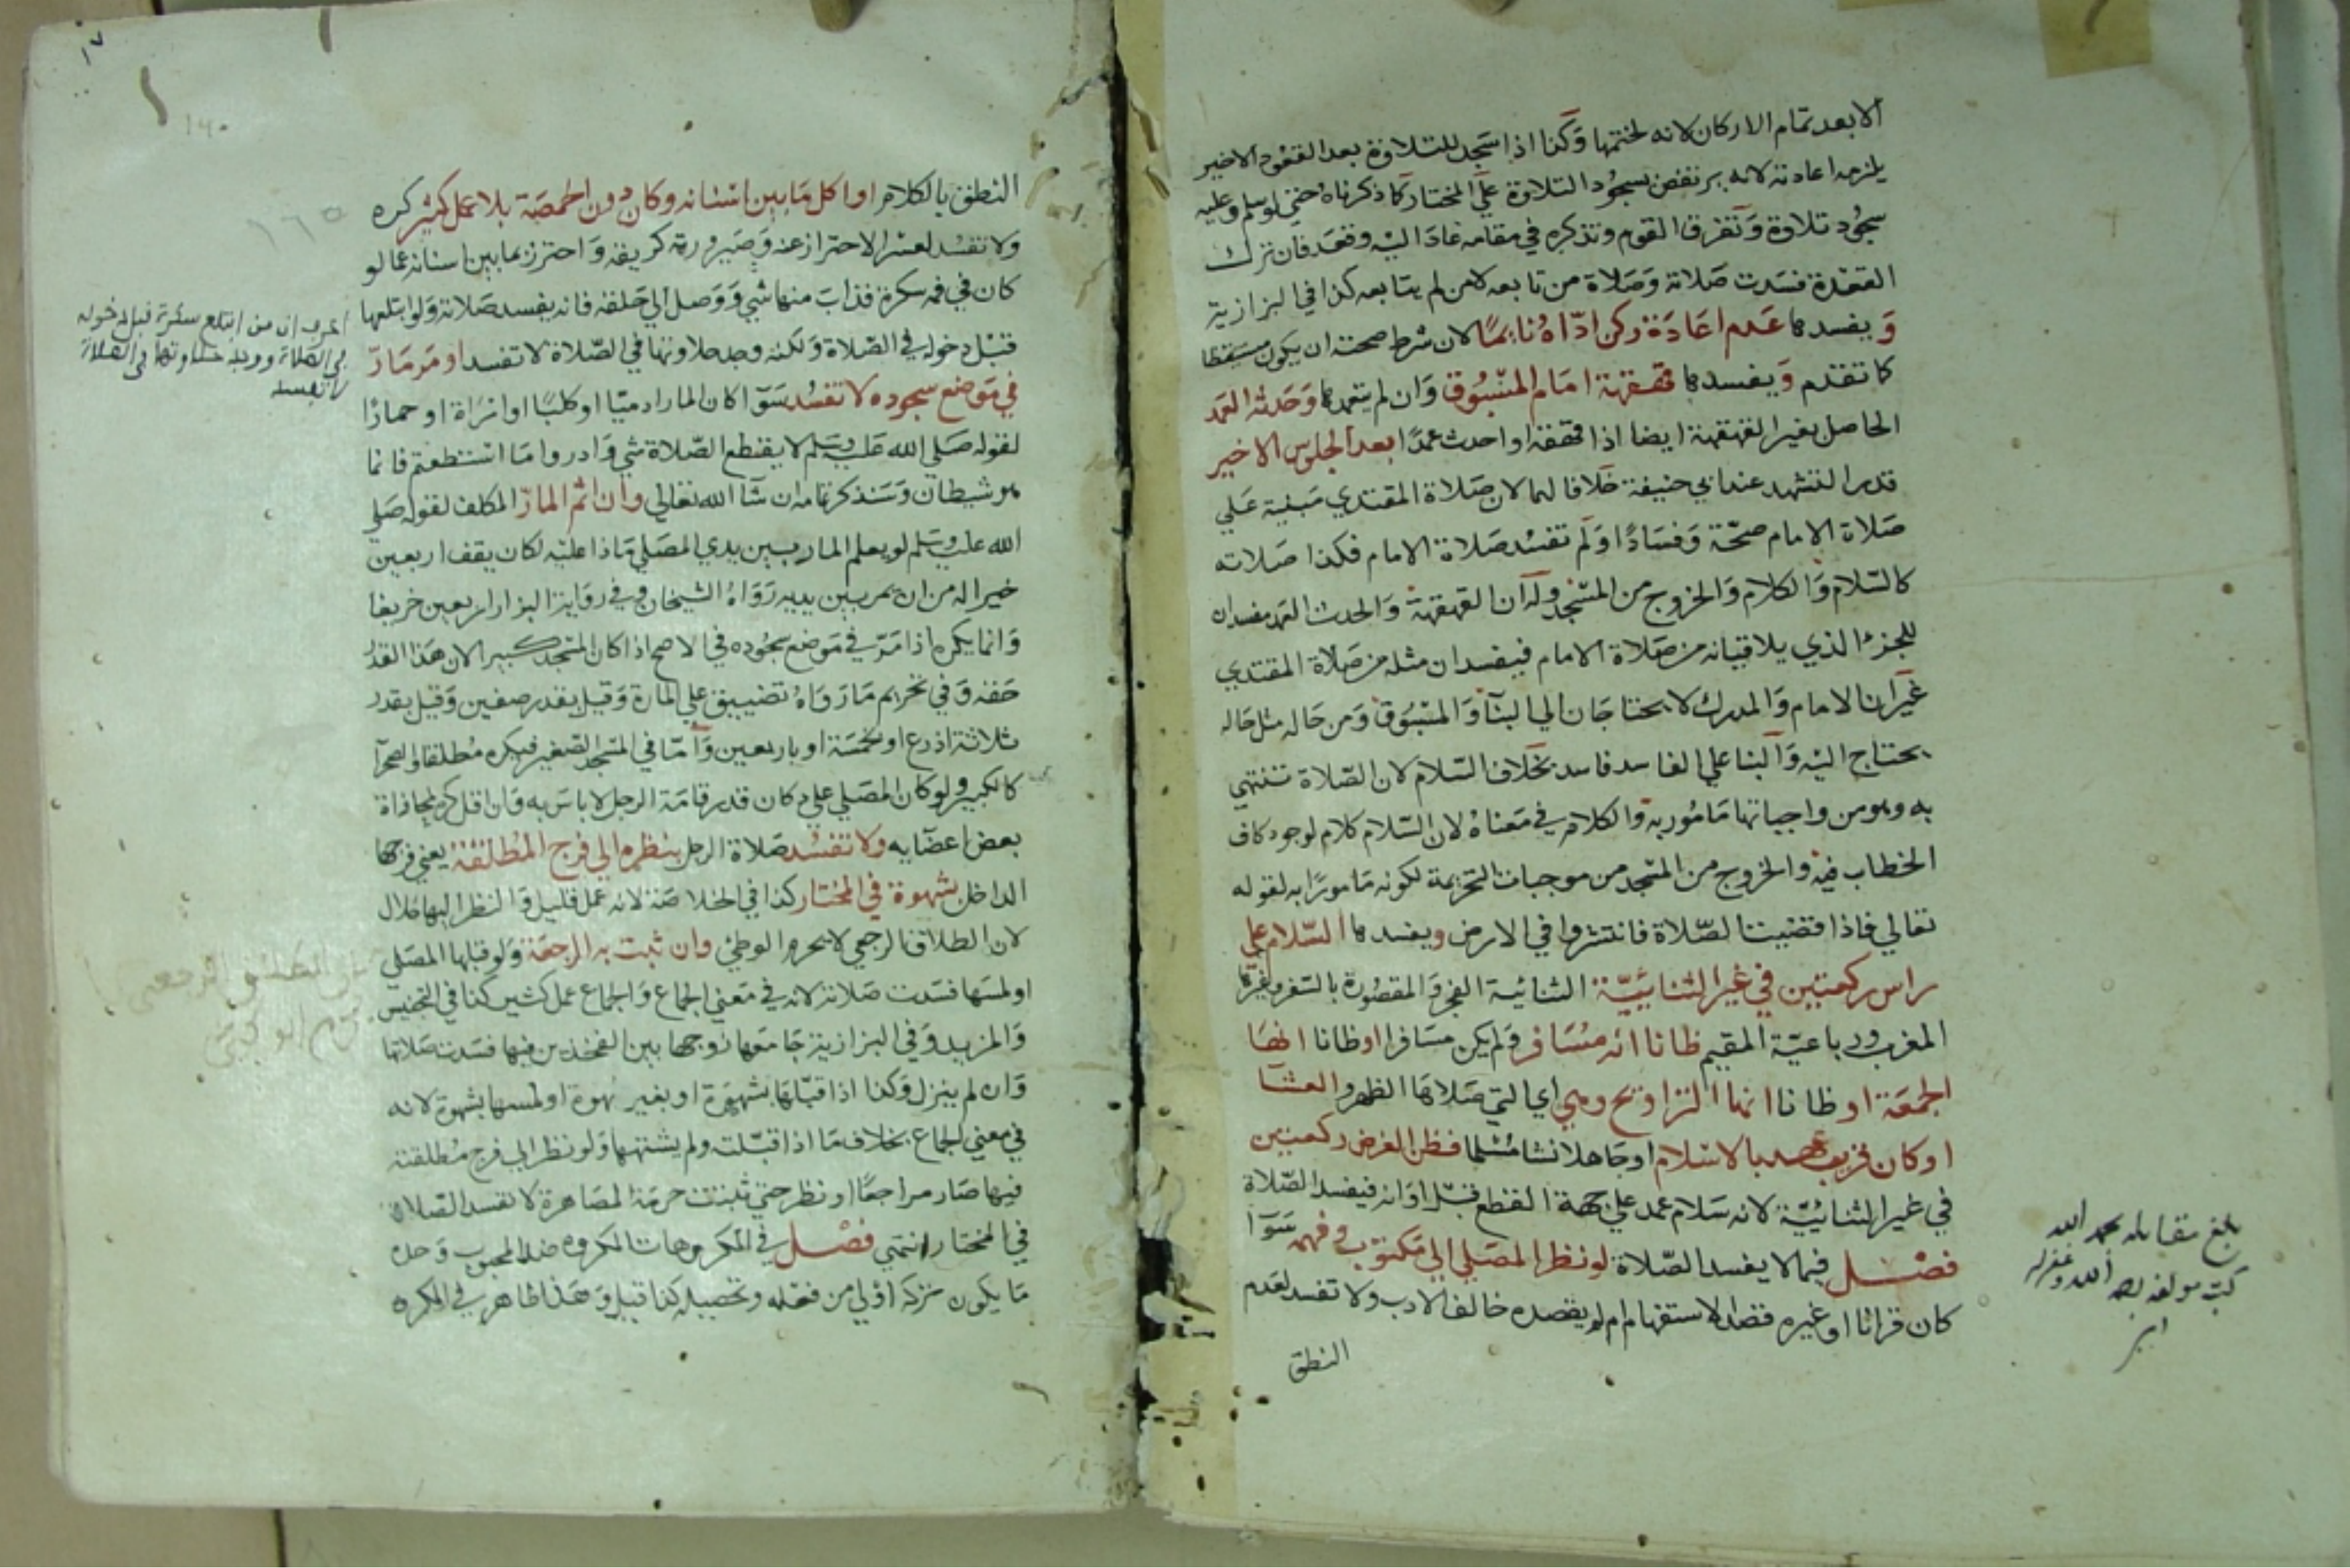 الا بعد تمام الاركان لانه لختمها وكذا اذا سجد للتلاوة بعد القعود الاخير
يلزمه اعادته لانه يرتفض بسجود التلاوة علي المختار كما ذكرناه حتي لو سلم وعليه
سجود تلاوة وتفرق القوم وتذكره في مقامه عاد اليه وقعد فان ترك
القعدة فسدت صلاته وصلاة من تابعه لا من لم يتابعه كذا في البزازية
ويفسدها عدم اعادة ركن ادّاه نائمًا لان شرط صحته ان يكون مستيقظا
كما تقدم ويفسدها قهقهة امام المسبوق وان لم يتعمدها وحدثه العمد
الحاصل بغير القهقهة ايضا اذا قهقه او احدث عمدًا بعد الجلوس الاخير
قدر التشهد عند ابي حنيفة خلافا لهما لان صلاة المقتدي مبنية علي
صلاة الامام صحّة وفسادًا ولم تفسد صلاة الامام فكذا صلاته
كالسّلام والكلام والخروج من المسجد وله ان القهقهة والحدث العمد مفسدان
للجزء الذي يلاقيانه من صلاة الامام فيفسدان مثله من صلاة المقتدي
غير ان الامام والمدرك لا يحتاجان الي البنآ والمسبوق ومن حاله مثل حاله
يحتاج اليه والبنا علي الفاسد فاسد بخلاف السّلام لان الصّلاة تنتهي
به وهو من واجباتها مامور به والكلام في معناه لان السّلام كلام لوجود كاف
الخطاب فيه والخروج من المسجد من موجبات التحريمة لكونه مامورًا به لقوله
تعالي فاذا قضيت الصّلاة فانتشروا في الارض ويفسدها السّلام علي
راس ركعتين في غير الثنائيّة الثنائية الفجر والمقصورة بالسّفر وغيرها
المغرب ورباعيّة المقيم ظانا انه مسافر ولم يكن مسافرا او ظانا انها
الجمعة او ظانا انها التراويح وهي اي التي صلاها الظهر والعشآ
او كان قريب عهد بالاسلام او جاهلا نشا مسلما فظن الفرض ركعتين
في غير الثنائيّة لانه سلام عمد علي جهة القطع قبل اوانه فيفسد الصّلاة
فصل فيما لا يفسد الصّلاة لو نظر المصلي الي مكتوب وفهمه سوآ
كان قرانا او غيره قصد الاستفهام ام لم يقصده خالف الادب ولا تفسد لعدم
النطق
بلغ مقابلة بحمد الله
كتبه مولفه رحمه الله وغفر له
١٧
١٤٠
١٦٥
النطق بالكلام او اكل ما بين اسنانه وكان دون الحمصة بلا عمل كثير كره
ولا تفسد لعسر الاحتراز عنه وصيرورته كريقه واحترز بما بين اسنانه عما لو
كان في فمه سكرة فذاب منها شي ووصل الي حلقه فانه يفسد صلاته ولو ابتلعها
قبل دخوله في الصّلاة ولكنه وجد حلاوتها في الصّلاة لا تفسد او مر مارّ
في موضع سجوده لا تفسد سوآ كان المار ادميّا او كلبًا او امراة او حمارًا
لقوله صلي الله عليه وسلم لا يقطع الصّلاة شي وادروا ما استطعتم فانما
هو شيطان وسنذكر تمامه ان شآ الله تعالي وان اثم المارّ المكلف لقوله صلي
الله عليه وسلم لو يعلم المار بين يدي المصلي ماذا عليه لكان يقف اربعين
خيرا له من ان يمر بين يديه رواه الشيخان وفي رواية البزار اربعين خريفا
وانما يكره اذا مرّ في موضع سجوده في الاصح اذا كان المسجد كبيرا لان هذا القدر
حقه وفي تحريم ما وراه تضييق علي المارة وقيل بقدر صفين وقيل بقدر
ثلاثة اذرع او بخمسة او باربعين وامّا في المسجد الصّغير فيكره مطلقا والصحرآ
كالكبير ولو كان المصلي علي دكان قدر قامة الرجل لا باس به وان اقل كره لمحاذاة
بعض اعضايه ولا تفسد صلاة الرجل بنظره الي فرج المطلقة يعني فرجها
الداخل بشهوة في المختار كذا في الخلاصة لانه عمل قليل والنظر اليها حلال
لان الطلاق الرجعي لا يحرم الوطئ وان ثبت به الرجعة ولو قبلها المصلي
او لمسها فسدت صلاته لانه في معني الجماع والجماع عمل كثير كذا في التجنيس
والمزيد وفي البزازية جامعها زوجها بين الفخذين فيها فسدت صلاتها
وان لم ينزل وكذا اذا قبّلها بشهوة او بغير شهوة او لمسها بشهوة لانه
في معني الجماع بخلاف ما اذا قبّلته ولم يشتهها ولو نظر الي فرج مطلقته
فيها صار مراجعًا او نظر حتي ثبتت حرمة المصاهرة لا تفسد الصّلاة
في المختار انتهي فصل في المكروهات المكروه ضد المحبوب وحده
ما يكون تركه اولي من فعله وتحصيله كذا قيل وهذا ظاهر في المكره
اعرف ان من ابتلع سكرة قبل دخوله
في الصلاة ووجد حلاوتها في الصلاة
لا تفسد